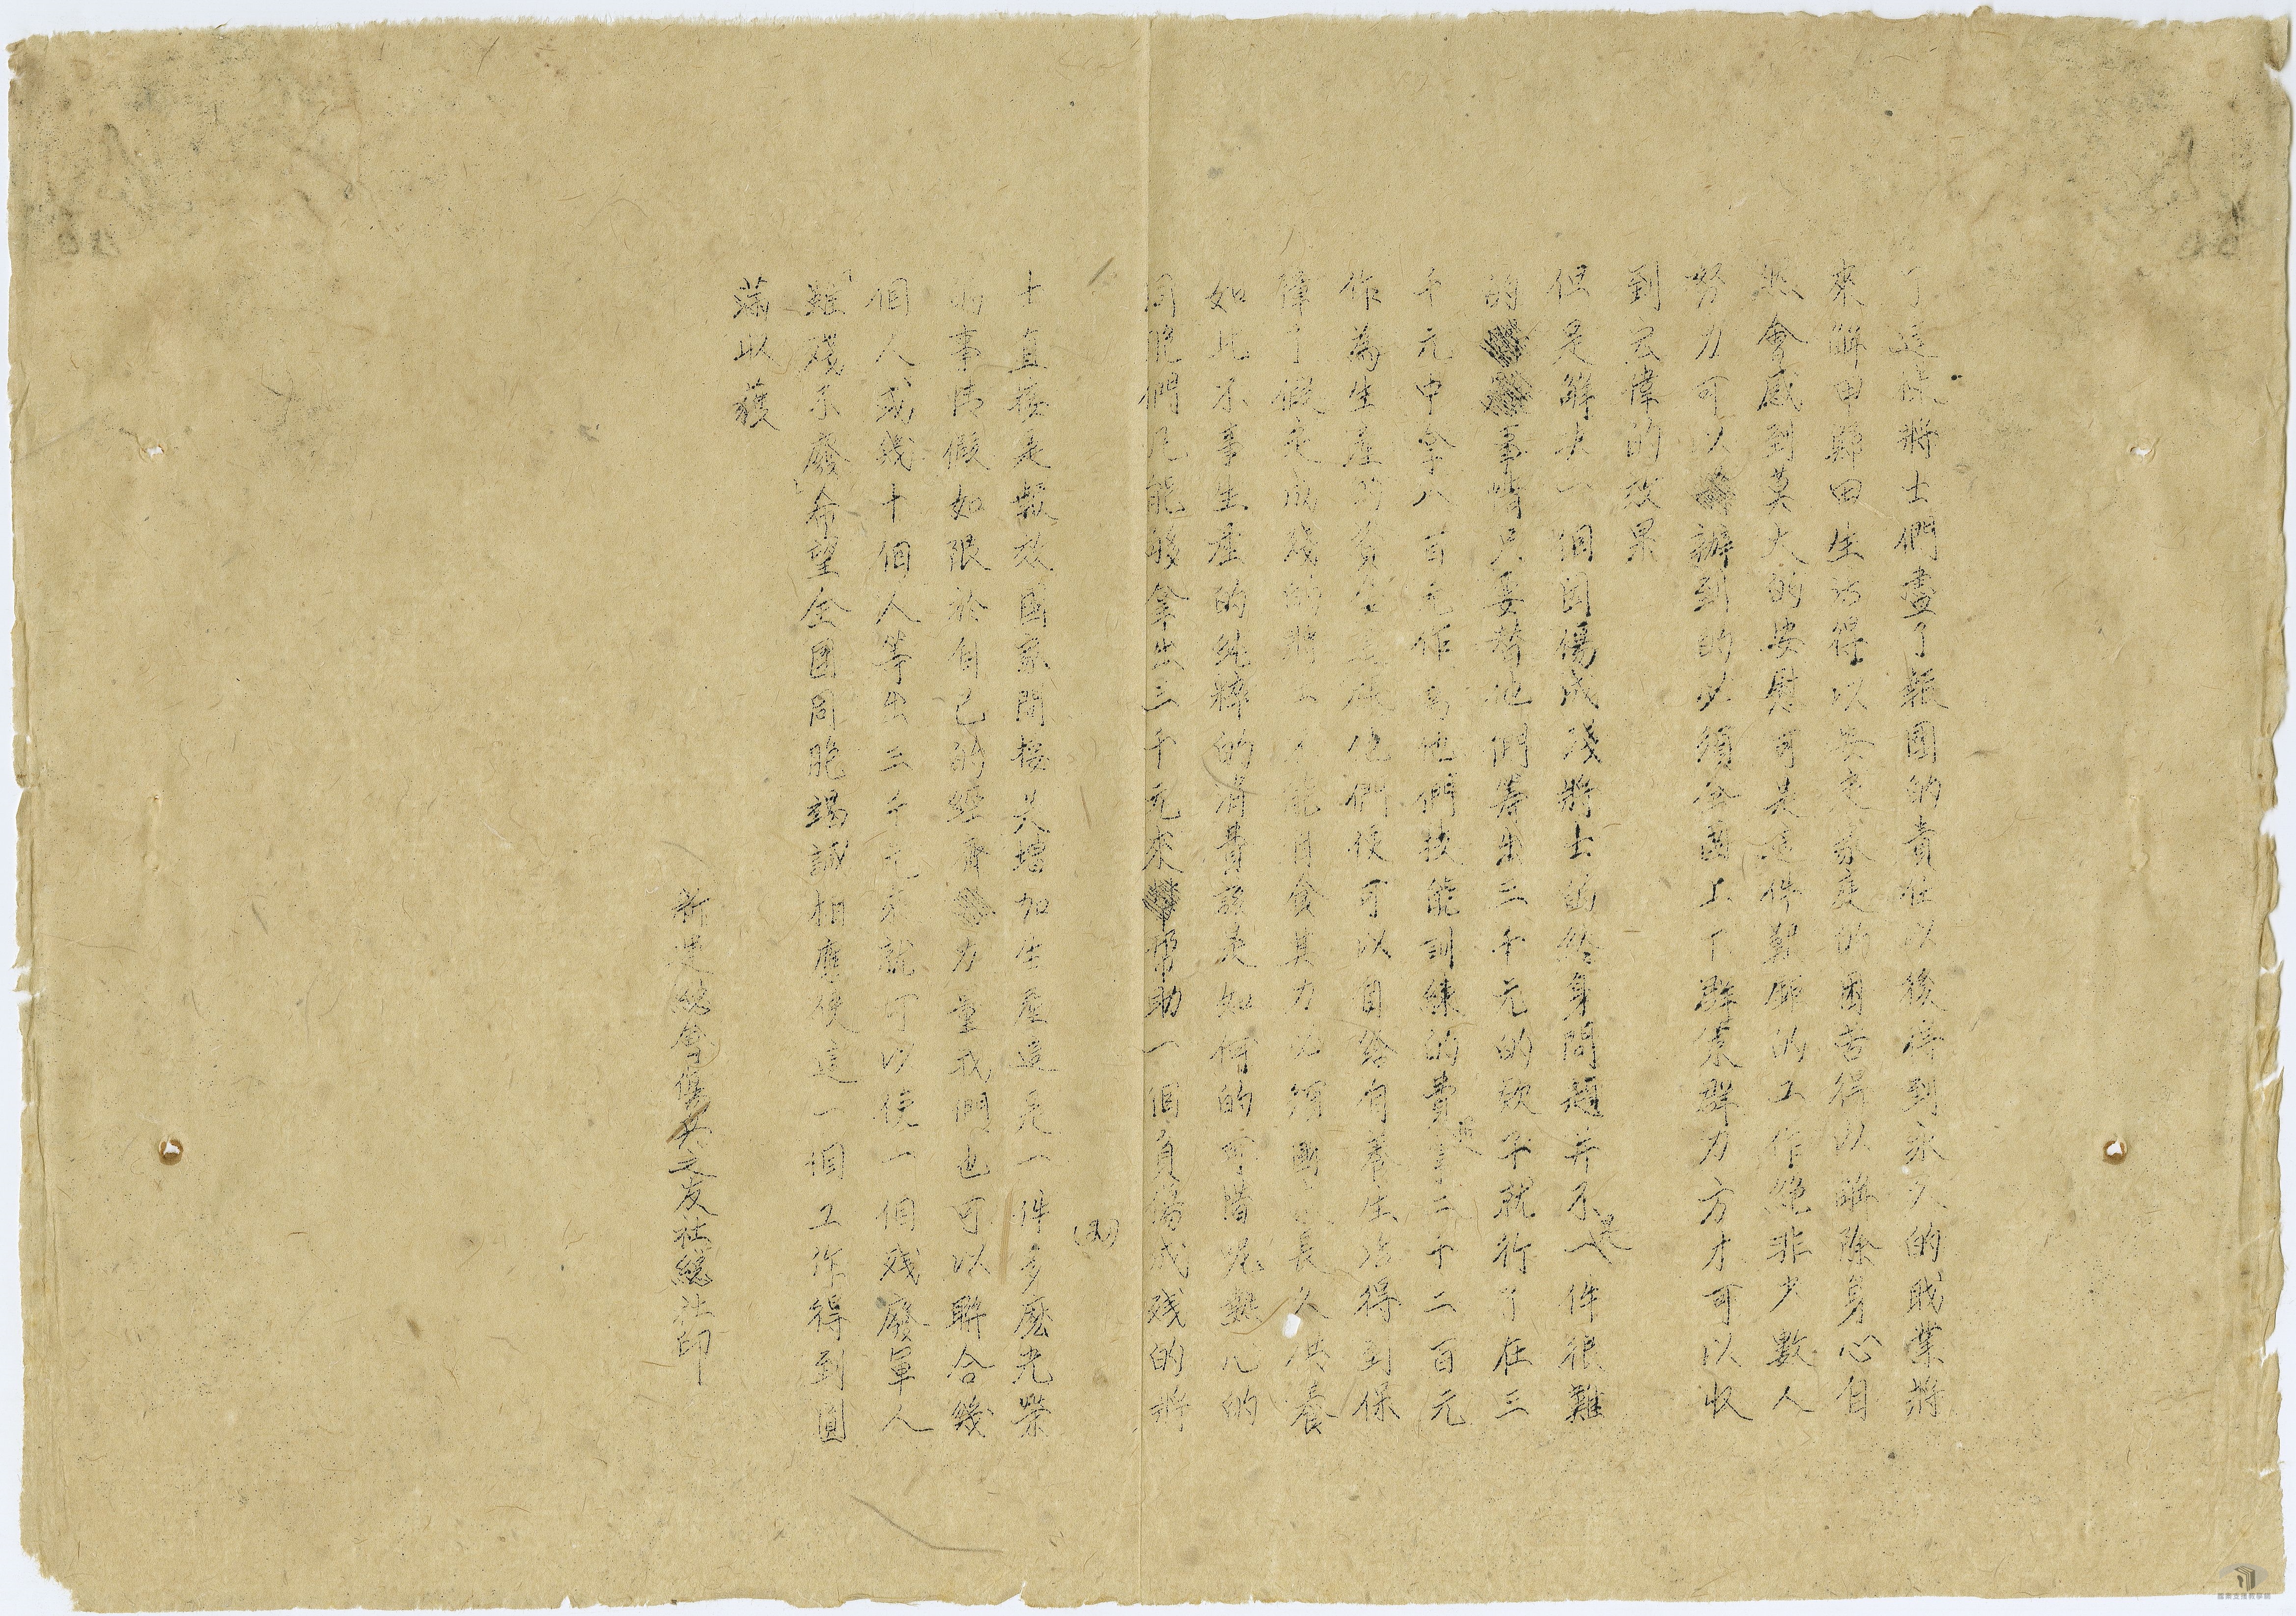 了這些將士們盡了報國的責任以後得到永久的職業將
來解甲歸田生活得以安定家庭的困苦得以解除身心自
然會感到莫大的安慰可是這件艱鉅的工作絕非少數人
努力可以辦到的必須全國上下群策群力方才可以收
到宏偉的效果
但是解決一個因傷成殘將士的終身問題并不是一件很難
的事情只要替他們籌出三千元的款子就行了在三
千元中拿八百元作為他們技能訓練的費二千二百元
作為生產的資金這樣他們便可以自給自養生活得到保
障了假定成殘的將士不能自食其力必須國家長久供養
如此不事生產的純粹的消費該是如何的可惜呢熱心的
同胞們凡能够拿出三千元來幫助一個負傷成殘的將
(五)
士直接是報效國家間接是增加生產這是一件多麽光榮
的事情假如限於自己的經濟力量我們也可以聯合幾
個人或幾十個人籌出三千元來就可以使一個殘廢軍人
「雖殘不廢」希望全國同胞竭誠相應使這一個工作得到圓
滿收穫
新運總會傷兵之友社總社印